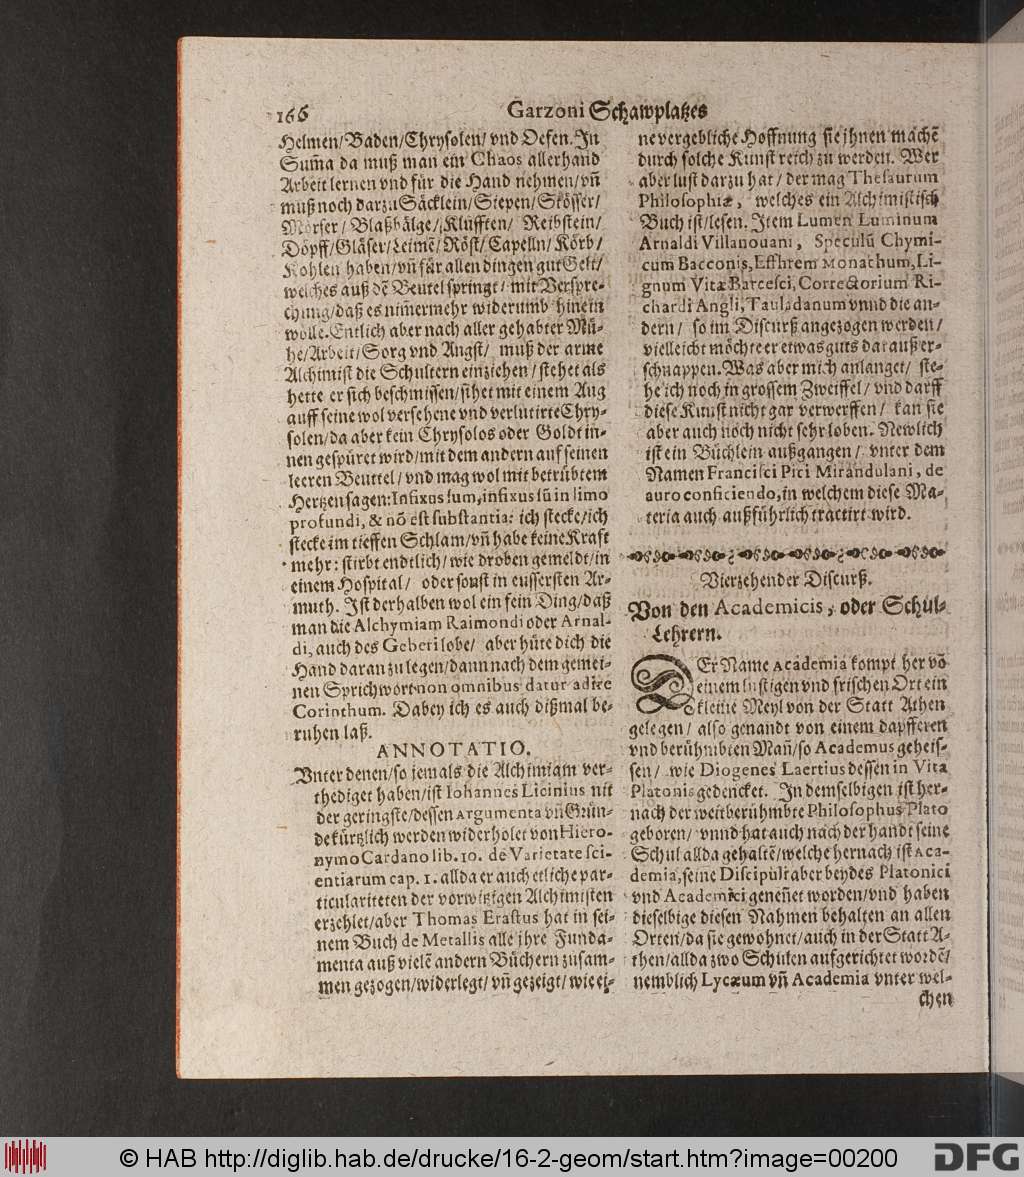 166
Garzoni Schawplatzes
Helmen/Baden/Chrysolen/ vnd Oefen. Jn
Sum̃a da muß man ein Chaos allerhand
Arbeit lernen vnd für die Hand nehmen/vñ
muß noch darzu Säcklein/Stepen/Stösser/
Mörser/Blaßbälge/Klufften/ Reibstein/
Döpff/Gläser/Leimẽ/Röst/Capelln/Körb/
Kohlen haben/vñ für allen dingen gut Gelt/
welches auß dẽ Beutel springt/ mit Verspre-
chung/daß es nim̃ermehr widerumb hinein
wolle. Entlich aber nach aller gehabter Mü-
he/Arbeit/Sorg vnd Angst/ muß der arme
Alchimist die Schultern einziehen/stehet als
hette er sich beschmissen/sihet mit einem Aug
auff seine wol versehene vnd verlutirte Chry-
solen/da aber kein Chrysolos oder Goldt in-
nen gespüret wird/mit dem andern auf seinen
leeren Beuttel/vnd mag wol mit betrübtem
Hertzen sagen: Infixus sum, infixus sũ in limo
profundi, & nõ est substantia: ich stecke/ich
stecke im tieffen Schlam/vñ habe keine Kraft
mehr: stirbt endtlich/wie droben gemeldt/in
einem Hospital/ oder sonst in eussersten Ar-
muth. Jst derhalben wol ein fein Ding/daß
man die Alchymiam Raimondi oder Arnal-
di, auch des Geberi lobe/ aber hüte dich die
Hand daran zu legen/dann nach dem gemei-
nen Sprichwort non omnibus datur adire
Corinthum. Dabey ich es auch dißmal be-
ruhen laß.
ANNOTATIO.
Vnter denen/so jemals die Alchimiam ver-
thediget haben/ist Iohannes Licinius nit
der geringste/dessen Argumenta vñ Grün-
de kürtzlich werden widerholet von Hiero-
nymo Cardano lib. 10. de Varietate sci-
entiarum cap. 1. allda er auch etliche par-
ticulariteten der vorwitzigen Alchimisten
erzehlet/aber Thomas Erastus hat in sei-
nem Buch de Metallis alle jhre Funda-
menta auß vielẽ andern Büchern zusam-
men gezogen/widerlegt/vñ gezeigt/wie ei-
ne vergebliche Hoffnung sie jhnen machẽ
durch solche Kunst reich zu werden. Wer
aber lust darzu hat/der mag Thesaurum
Philosophiæ, welches ein Alchimistisch
Buch ist/lesen. Jtem Lumen Luminum
Arnaldi Villanouani, Speculũ Chymi-
cum Bacconis, Effhrem Monathum, Li-
gnum Vitæ Barcesci, Correctorium Ri-
chardi Angli, Tauladanum vnnd die an-
dern/ so im Discurß angezogen werden/
vielleicht möchte er etwas guts darauß er-
schnappen. Was aber mich anlanget/ ste-
he ich noch in grossem Zweiffel/ vnd darff
diese Kunst nicht gar verwerffen/ kan sie
aber auch noch nicht sehr loben. Newlich
ist ein Büchlein außgangen/ vnter dem
Namen Francisci Pici Mirandulani, de
auro conficiendo, in welchem diese Ma-
teria auch außführlich tractirt wird.
Vierzehender Discurß.
Von den Academicis, oder Schul-
Lehrern.
DEr Name Academia kompt her võ
einem lustigen vnd frischen Ort ein
kleine Meyl von der Statt Athen
gelegen/ also genandt von einem dapfferen
vnd berühmbten Mañ/so Academus geheis-
sen/ wie Diogenes Laertius dessen in Vita
Platonis gedencket. Jn demselbigen ist her-
nach der weitberühmbte Philosophus Plato
geboren/ vnnd hat auch nach der handt seine
Schul allda gehaltẽ/welche hernach ist Aca-
demia, seine Discipuli aber beydes Platonici
vnd Academici geneñet worden/vnd haben
dieselbige diesen Nahmen behalten an allen
Orten/da sie gewohnet/auch in der Statt A-
then/allda zwo Schulen aufgerichtet wordẽ/
nemblich Lycæum vñ Academia vnter wel-
chen
© HAB http://diglib.hab.de/drucke/16-2-geom/start.htm?image=00200
DFG